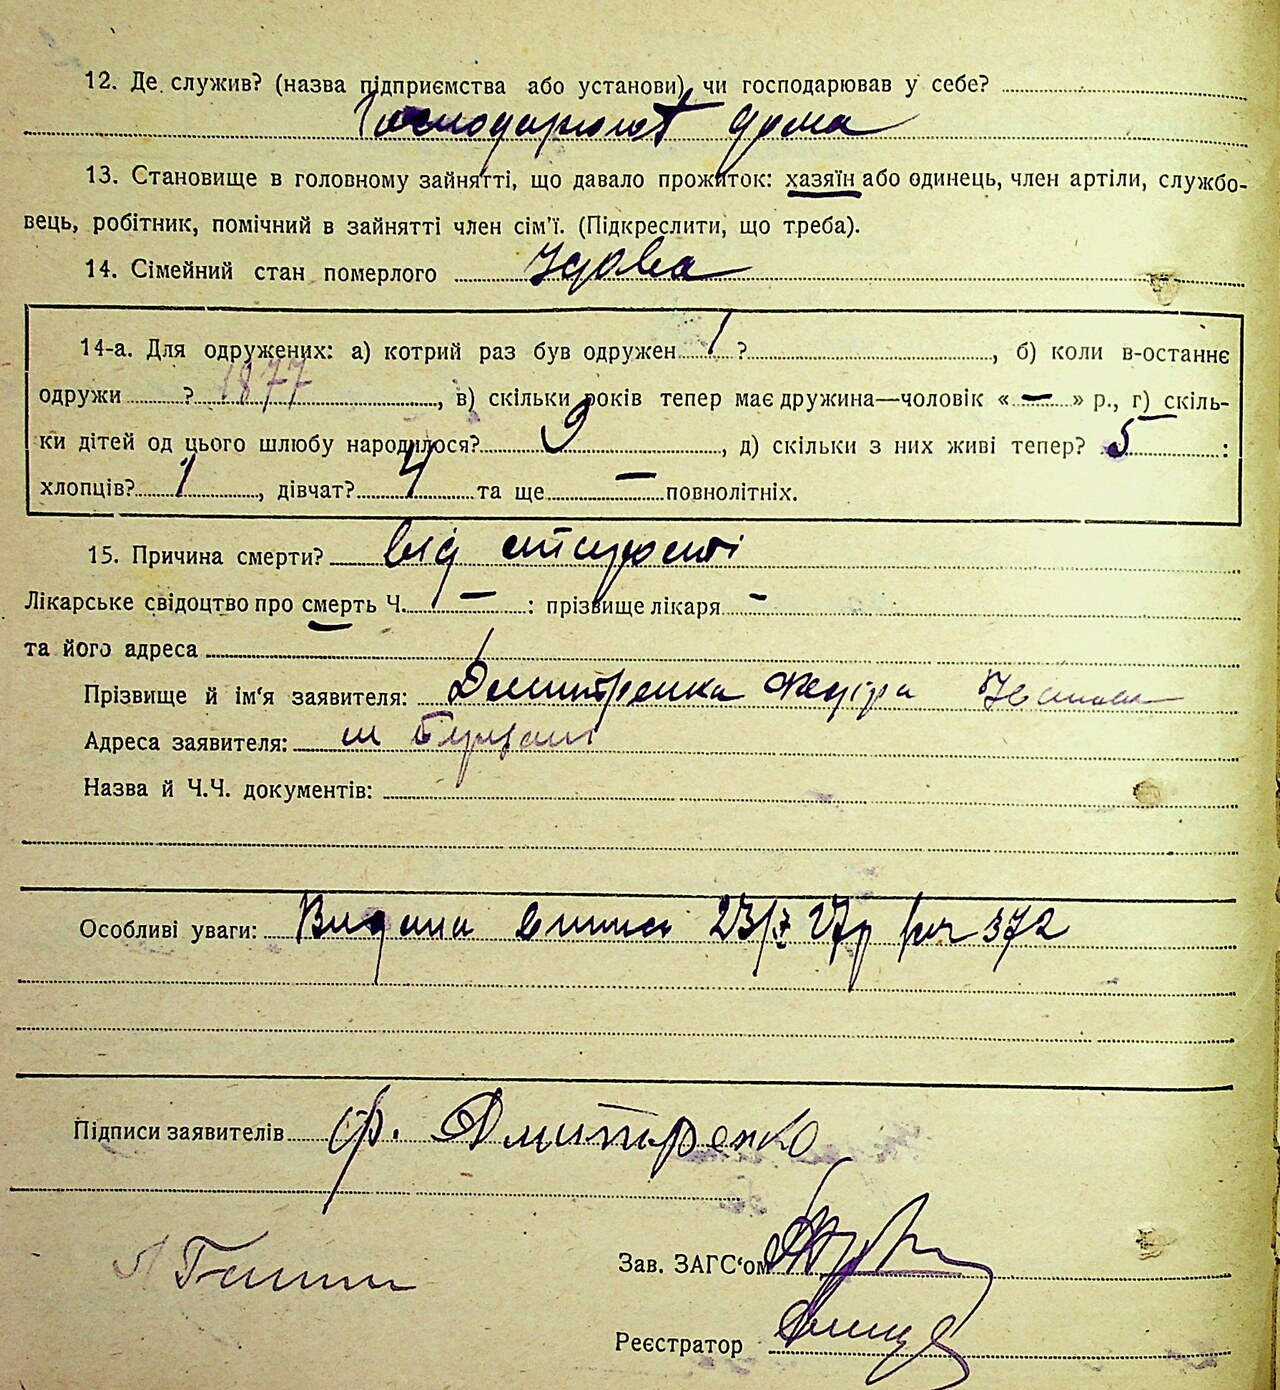 12. Де служив? (назва підприємства або установи) чи господарював у себе?
Господарюют дома
13. Становище в головному зайнятті, що давало прожиток: хазяїн або одинець, член артіли, службо-
вець, робітник, помічний в зайнятті член сім'ї. (Підкреслити, що треба).
14. Сімейний стан померлого Удова
14-а. Для одружених: а) котрий раз був одружен 1 ? , б) коли в-останнє
одружи ? 1877, в) скільки років тепер має дружина—чоловік « — » р., г) скіль-
ки дітей од цього шлюбу народилося? 9, д) скільки з них живі тепер? 5 :
хлопців? 1, дівчат? 4 та ще — повнолітніх.
15. Причина смерти? від старости
Лікарське свідоцтво про смерть Ч. — : прізвище лікаря —
та його адреса
Прізвище й ім'я заявителя: Дмитренка Федіра
Адреса заявителя: м
Назва й Ч.Ч. документів:
Особливі уваги: Видана 23/X 27р 372
Підписи заявителів ф. Дмитренко
Зав. ЗАГС'ом
Реєстратор